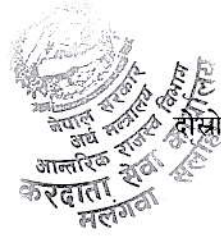 नेपाल सरकार
अर्थ मन्त्रालय
आन्तरिक राजस्व विभाग
करदाता सेवा कार्यालय
मलंगवा